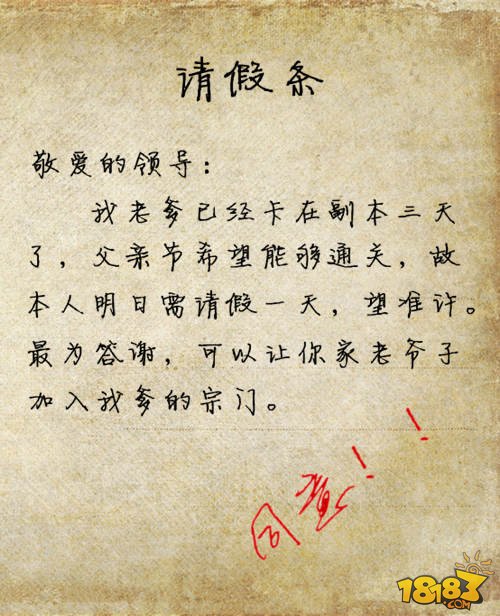 请假条
敬爱的领导：
我老爹已经卡在副本三天
了，父亲节希望能够通关，故
本人明日需请假一天，望准许。
最为答谢，可以让你家老爷子
加入我爹的宗门。
同意！！
18183
.COM